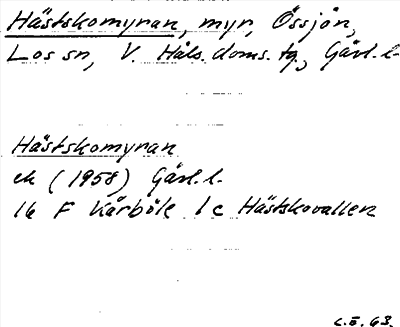 Hästskomyran, myr, Össjön,
Los sn, V. Häls. doms. tg., Gävl. l.
Hästskomyran
ek (1958) Gävl. l.
16 F Kårböle 1c Hästskovallen
C.E. 63.